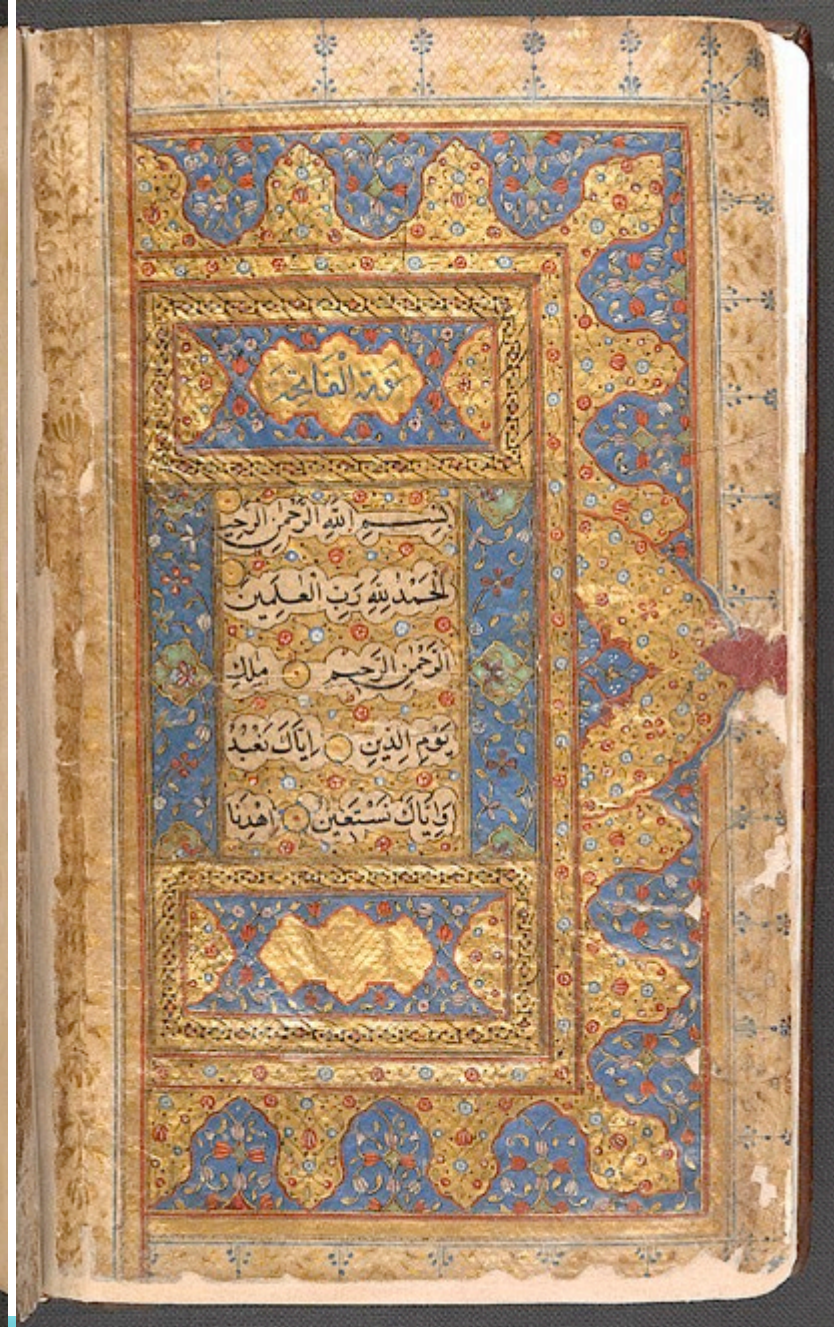 سورة الفاتحة
بِسْــمِ اللّٰهِ الرَّحْمٰنِ الرَّحِيمِ
اَلْحَمْدُ لِلّٰهِ رَبِّ الْعٰلَمِينَ
الرَّحْمٰنِ الرَّحِيمِ مٰلِكِ
يَوْمِ الدِّينِ اِيَّاكَ نَعْبُدُ
وَاِيَّاكَ نَسْتَعِينُ اِهْدِنَا